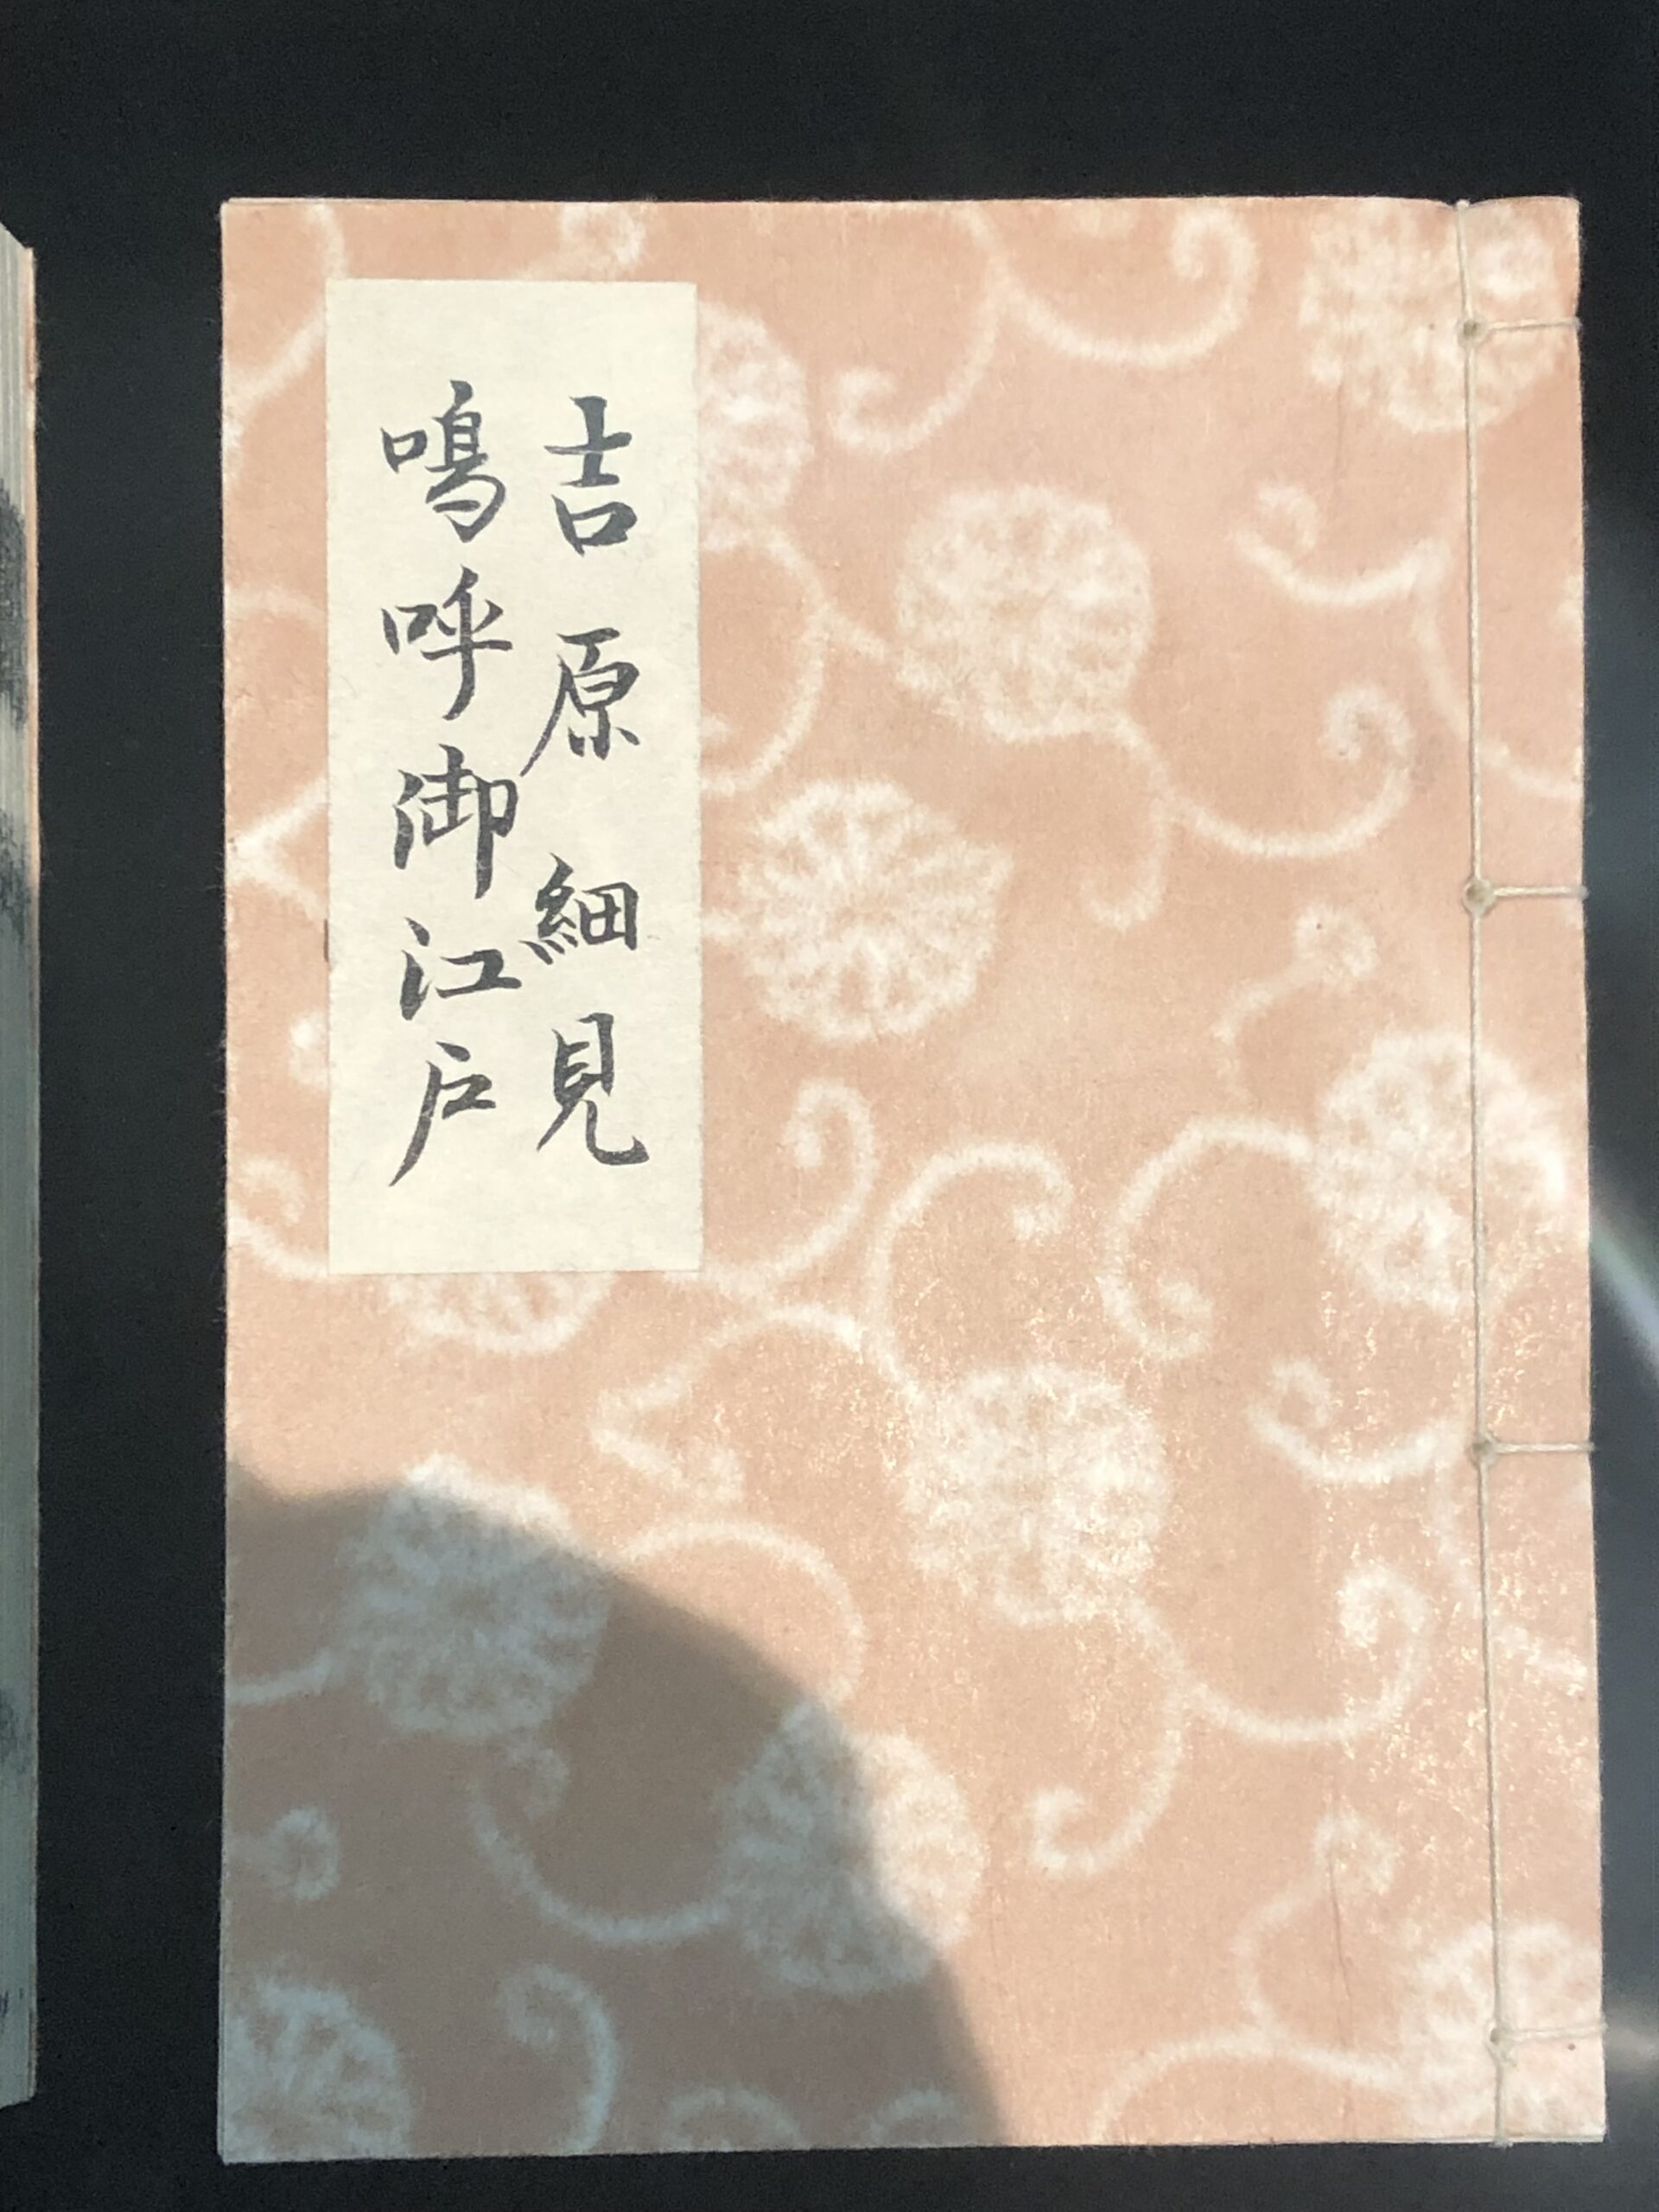 吉原細見
嗚呼御江戸